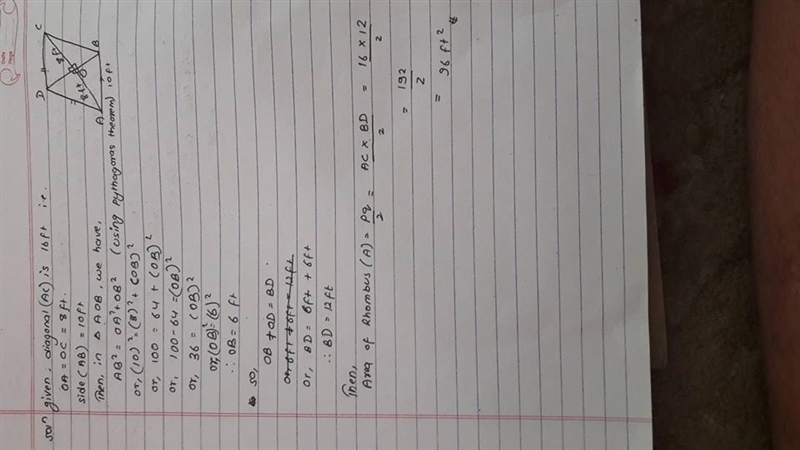 soln given, diagonal (AC) is 16ft i.e.
OA = OC = 8 ft.
side (AB) = 10ft
Then, in △ AOB, we have,
AB² = OA² + OB² (using pythagoras theorem)
or, (10)² = (8)² + (OB)²
or, 100 = 64 + (OB)²
or, 100 - 64 = (OB)²
or, 36 = (OB)²
or, (OB)² = (6)²
∴ OB = 6 ft
D C
8ft
O
8ft
A B
10ft
so,
OB + OD = BD.
or, 6ft + 6ft = 12ft
or, BD = 6ft + 6ft
∴ BD = 12ft
Then,
Area of Rhombus (A) = pq/2 = AC × BD/2 = 16 × 12/2
= 192/2
= 96 ft²